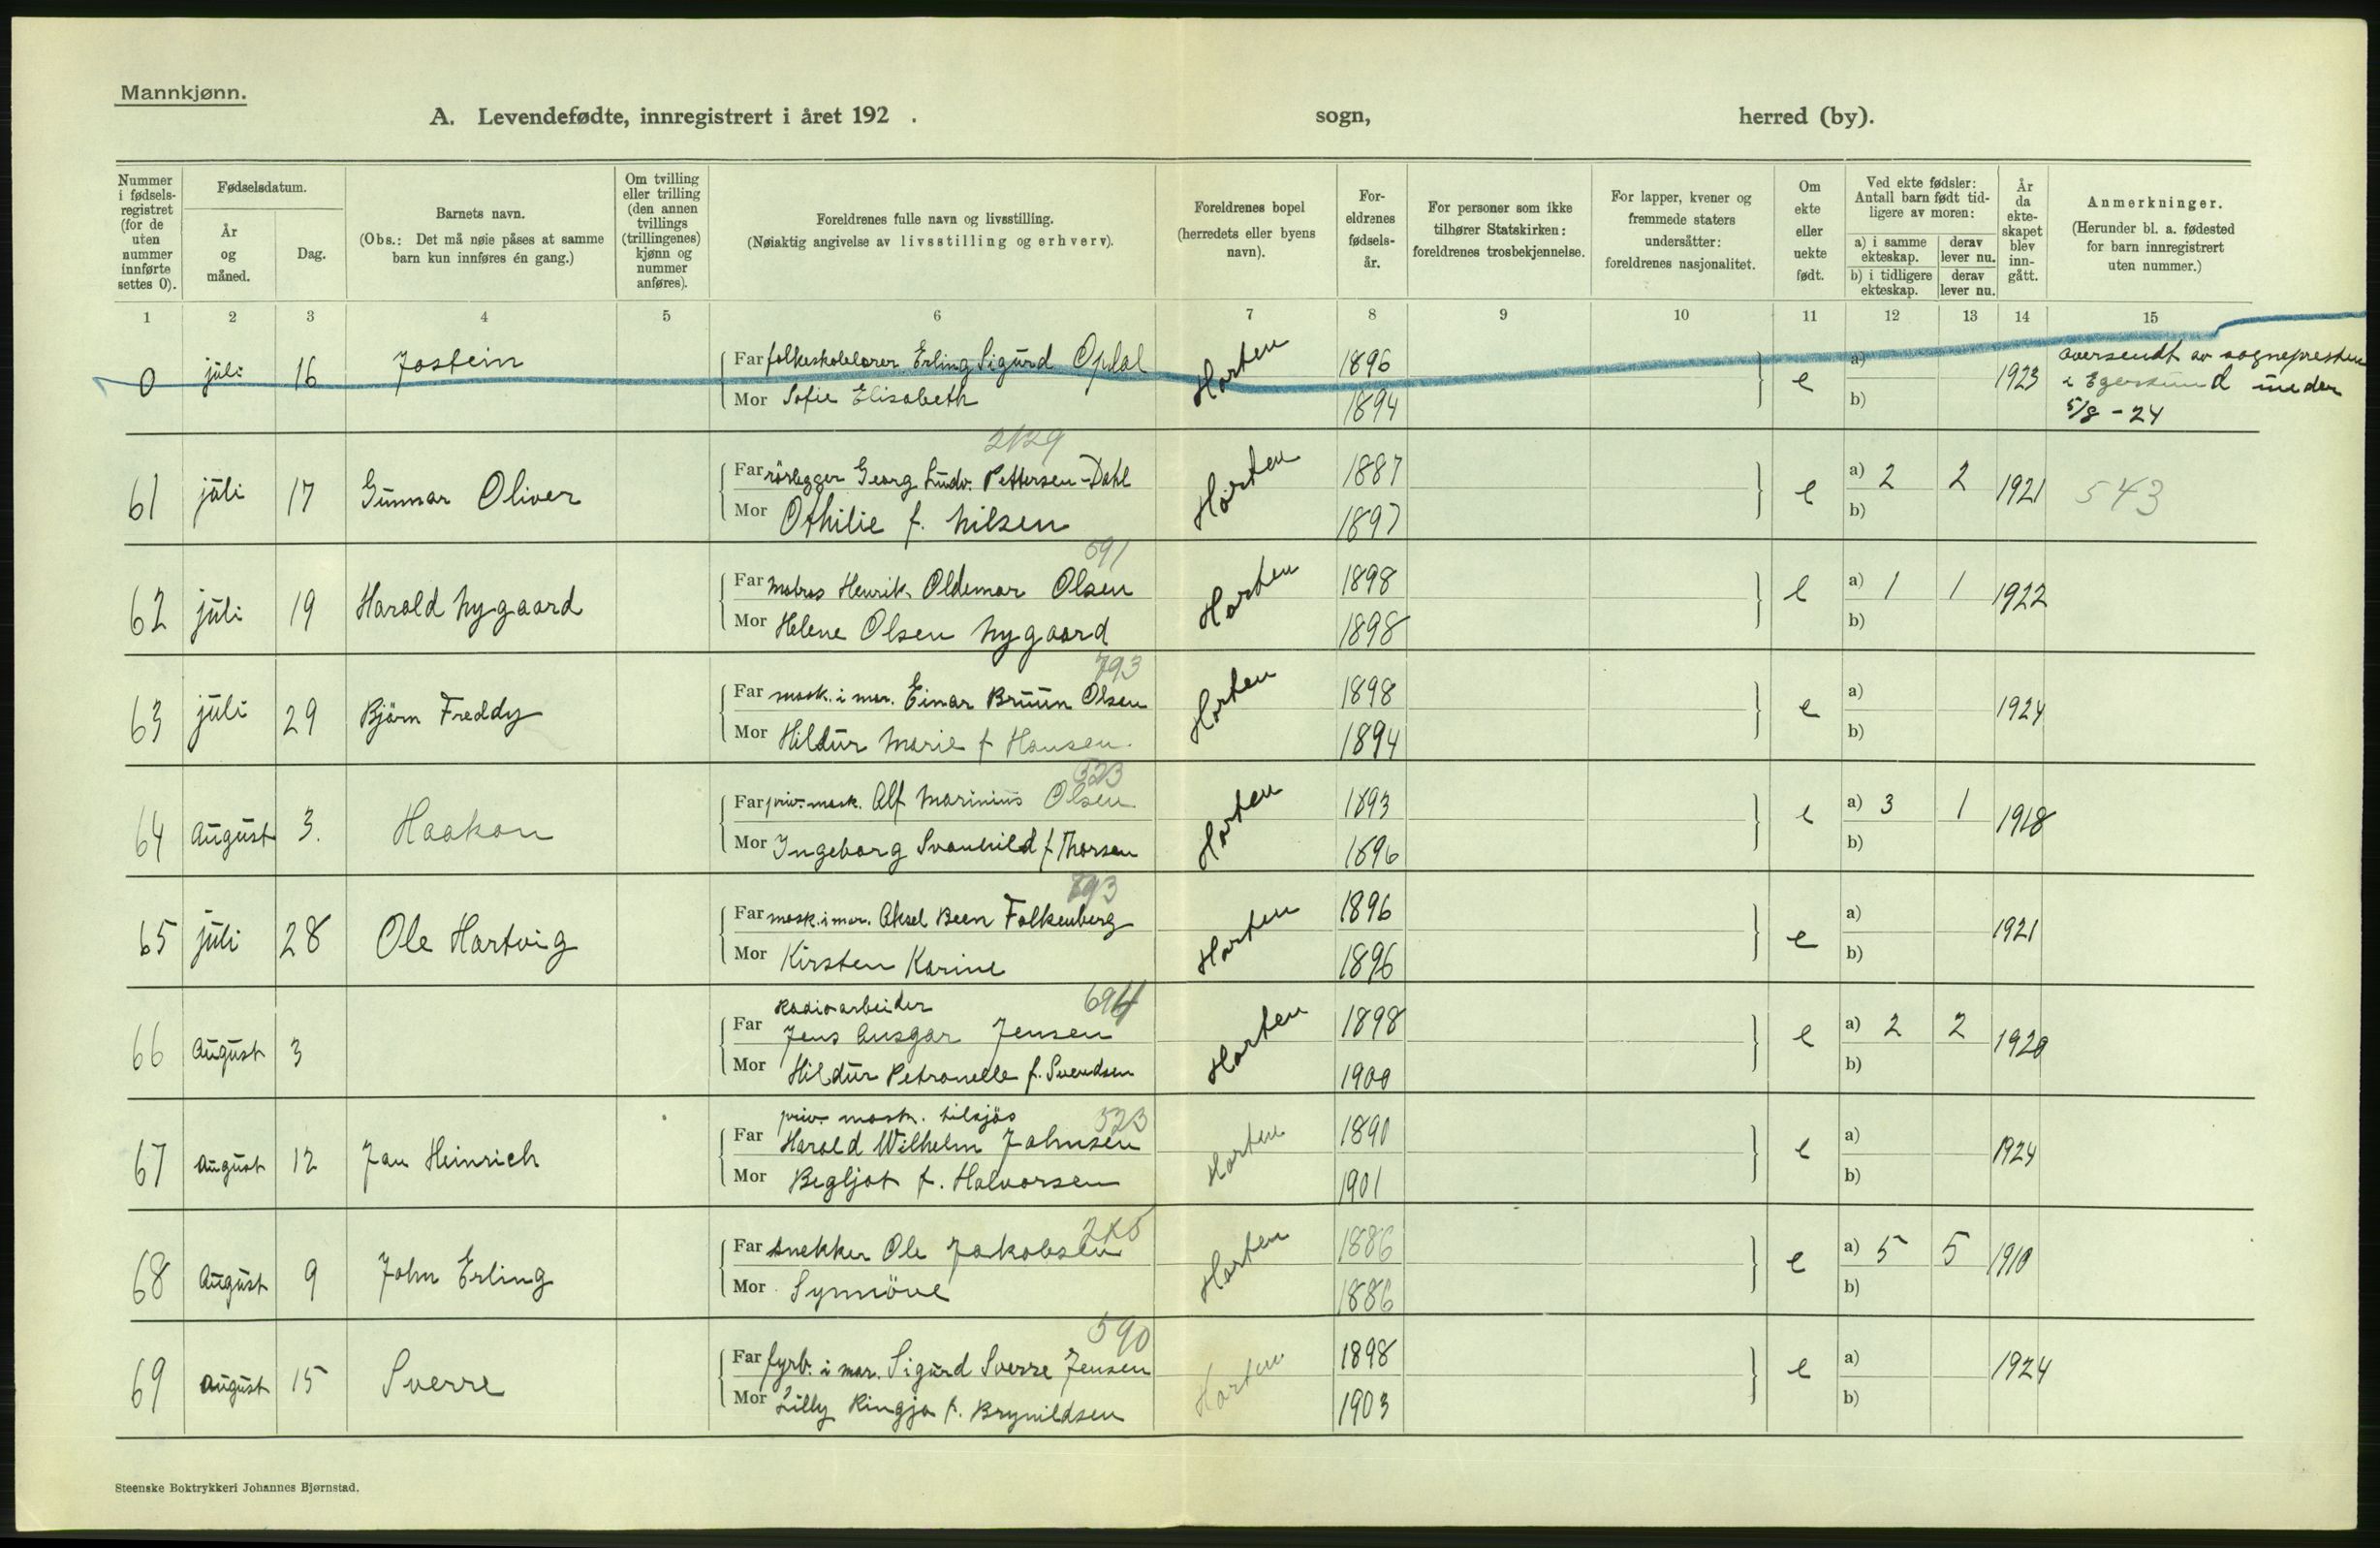 Mannkjønn.
A. Levendefødte, innregistrert i året 192 . sogn, herred (by).
Nummer i fødsels-registret (for de uten nummer innførte settes 0).
Fødselsdatum.
År og måned.
Dag.
Barnets navn.
(Obs.: Det må nøie påses at samme barn kun innføres én gang.)
Om tvilling eller trilling (den annen tvillings (trillingenes) kjønn og nummer anføres).
Foreldrenes fulle navn og livsstilling.
(Nøiaktig angivelse av livsstilling og erhverv).
Foreldrenes bopel (herredets eller byens navn).
For-eldrenes fødsels-år.
For personer som ikke tilhører Statskirken: foreldrenes trosbekjennelse.
For lapper, kvener og fremmede staters undersåtter: foreldrenes nasjonalitet.
Om ekte eller uekte født.
Ved ekte fødsler: Antall barn født tid-ligere av moren:
a) i samme ekteskap.
derav lever nu.
b) i tidligere ekteskap.
derav lever nu.
År da ekte-skapet blev inn-gått.
Anmerkninger.
(Herunder bl. a. fødested for barn innregistrert uten nummer.)
1 2 3 4 5 6 7 8 9 10 11 12 13 14 15
0 juli 16 Jostein Far folkeskolelærer Erling Sigurd Opdal Horten 1896 e a) 1923 oversendt av sognepresten
Mor Sofie Elisabeth 1894 b) i Egersund meder
5/8 - 24
2129
61 juli 17 Gunnar Oliver Far rörlegger Georg Ludv. Pettersen-Dahl Horten 1887 e a) 2 2 1921 543
Mor Othilie f. Nilsen 1897 b)
591
62 juli 19 Harald Nygaard Far matros Henrik Oldemar Olsen Horten 1898 e a) 1 1 1922
Mor Helene Olsen Nygaard 1898 b)
793
63 juli 29 Björn Freddy Far mask. i mar. Einar Bruun Olsen Horten 1898 e a) 1924
Mor Hildur Marie f Hansen. 1894 b)
523
64 August 3. Haakon Far priv. mask. Alf Marinius Olsen Horten 1893 e a) 3 1 1918
Mor Ingeborg Svanhild f Thorsen 1896 b)
793
65 juli 28 Ole Hartvig Far mask. i mar. Aksel Been Falkenberg Horten 1896 e a) 1921
Mor Kirsten Karine 1896 b)
Radioarbeider 694
66 August 3 Far Jens Ansgar Jensen Horten 1898 e a) 2 2 1920
Mor Hildur Petronelle f. Svendsen 1900 b)
priv. mask. tilsjös 523
67 August 12 Jan Heinrich Far Harald Wilhelm Johnsen Horten 1890 e a) 1924
Mor Begljot f. Halvorsen 1901 b)
68 August 9 John Erling Far snekker Ole Jakobsen Horten 1886 e a) 5 5 1910
Mor Synnöve 1886 b)
590
69 august 15 Sverre Far fyrb. i mar. Sigurd Sverre Jensen Horten 1898 e a) 1924
Mor Lilly Ringja f. Brynildsen 1903 b)
Steenske Boktrykkeri Johannes Bjørnstad.